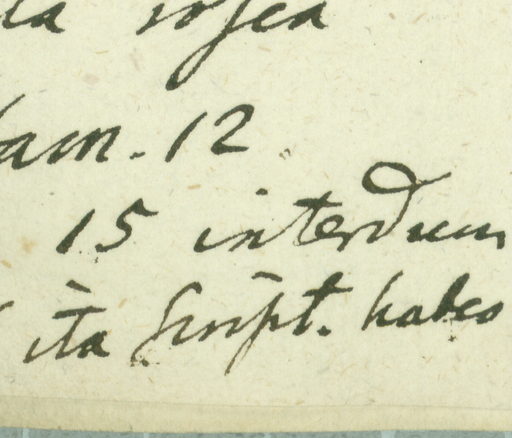 ta rosea
am. 12
15 interdum
ita script. habeo